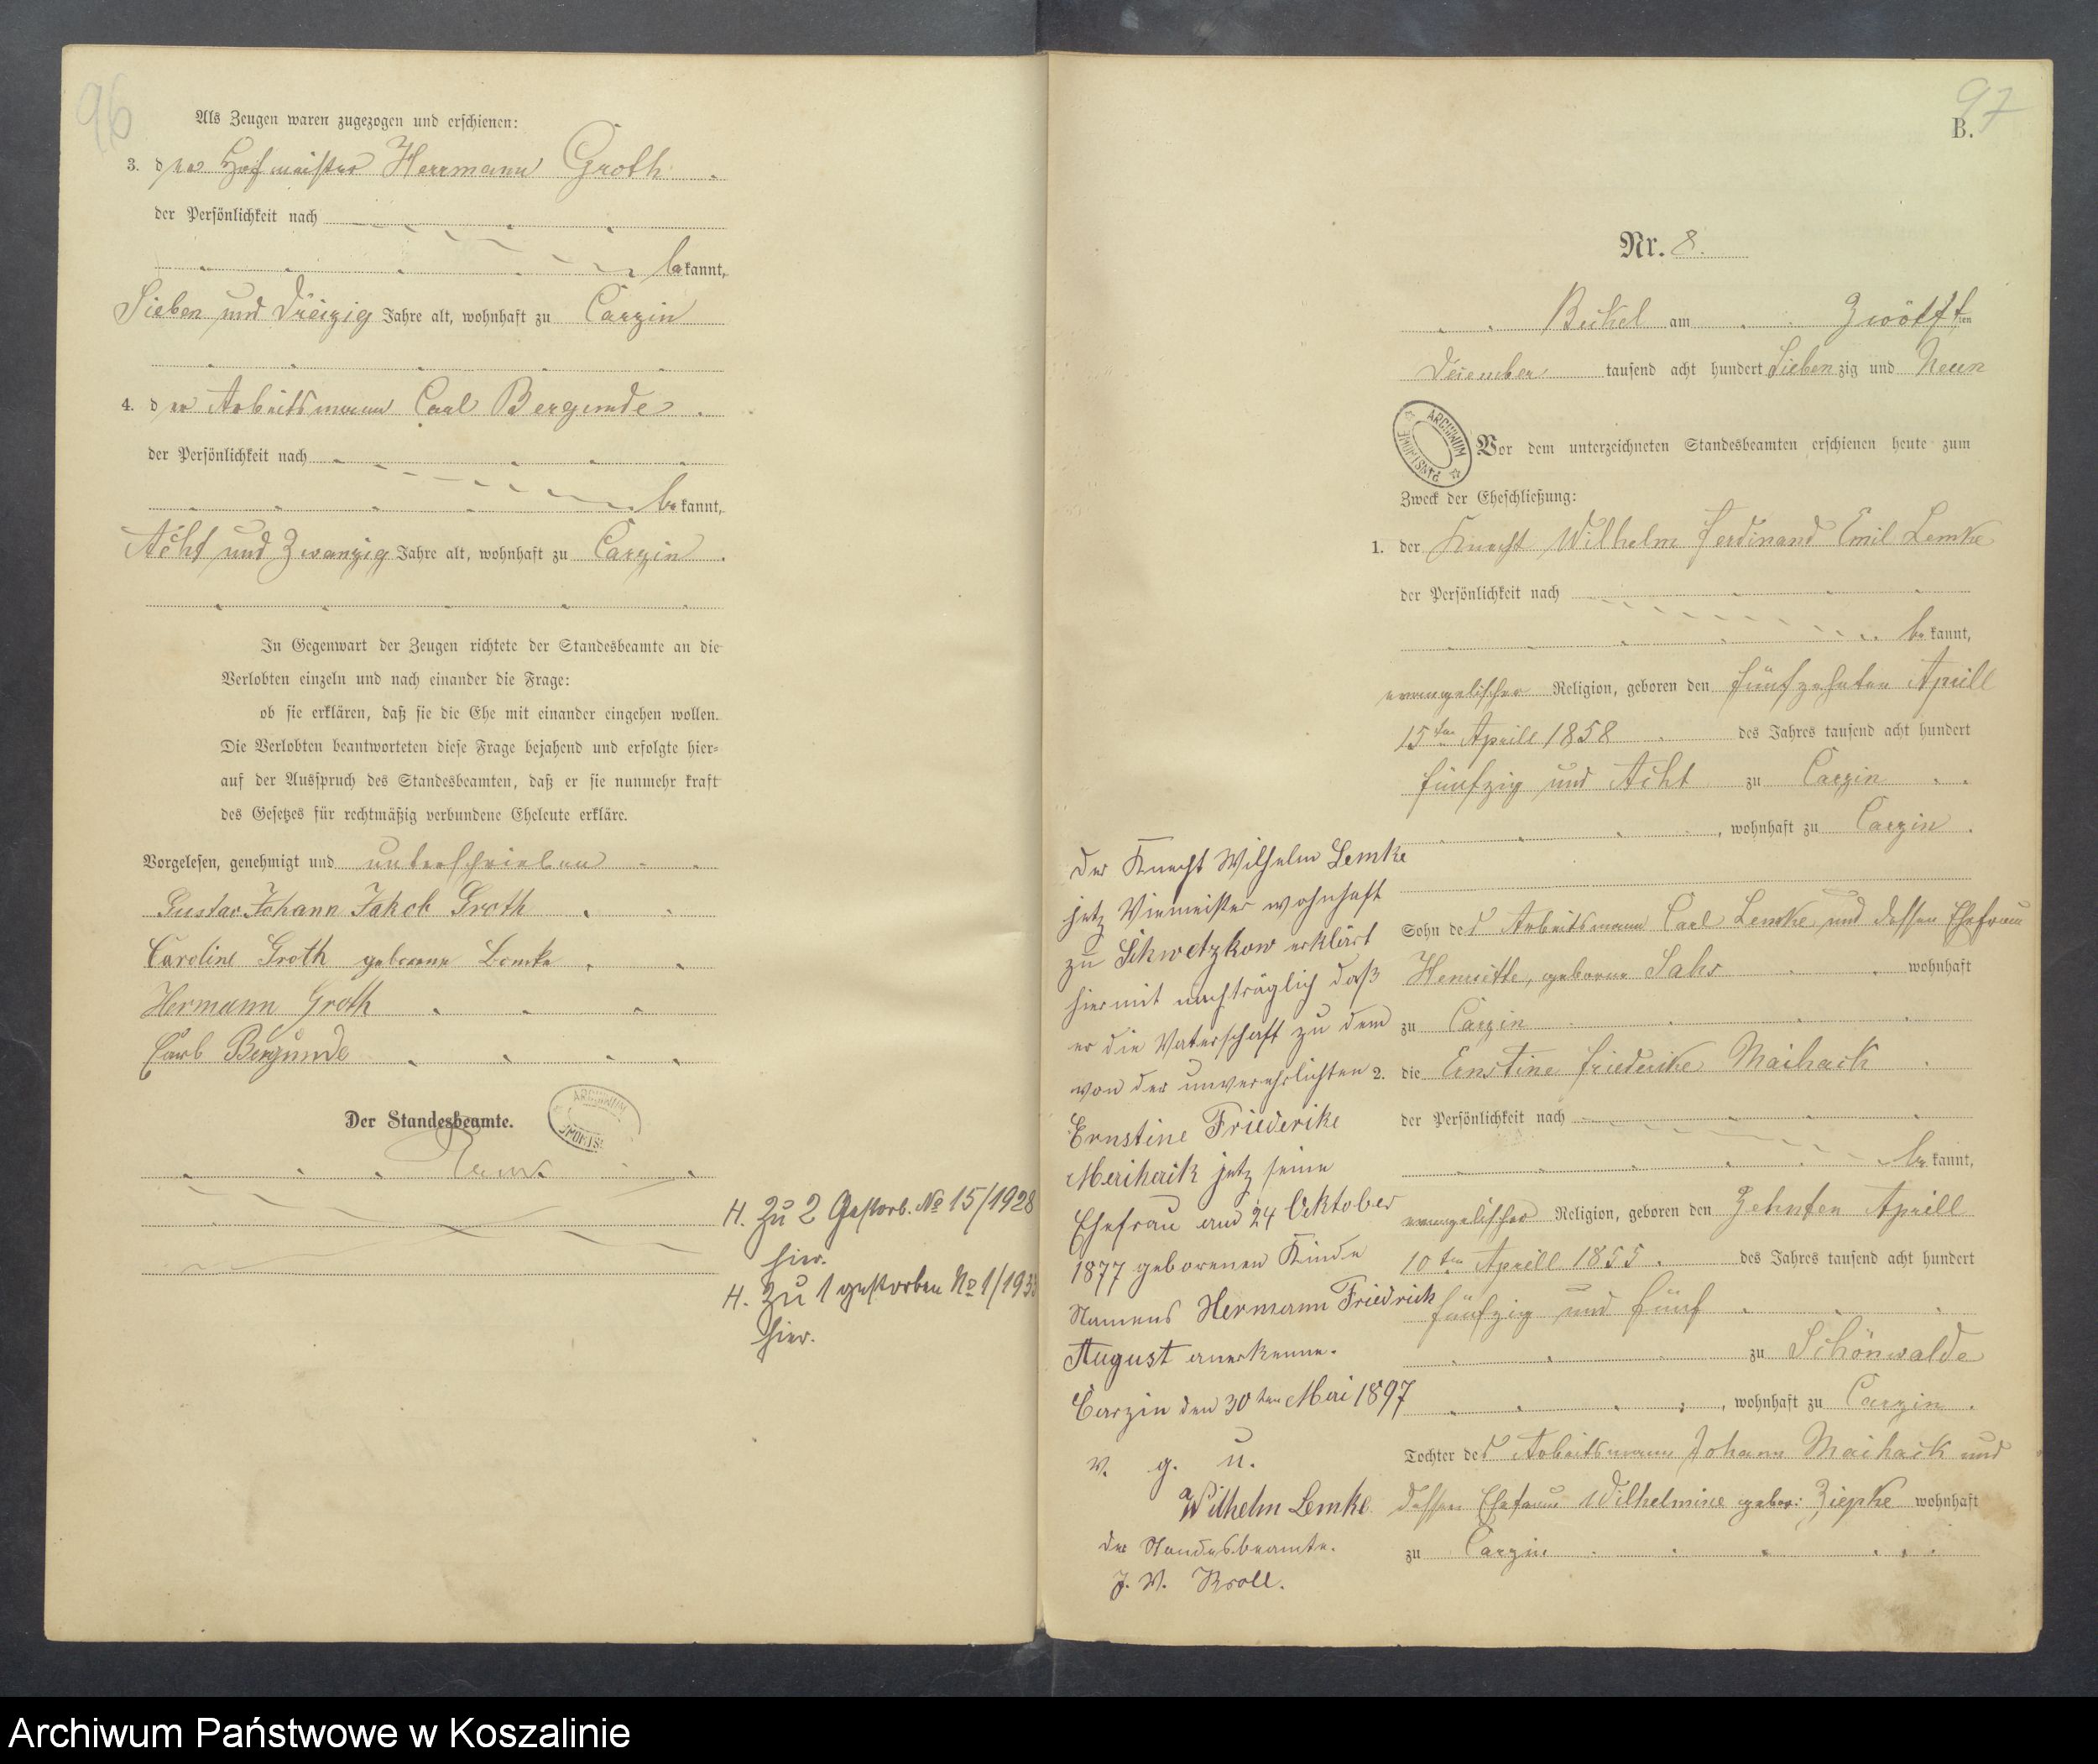 96
Als Zeugen waren zugezogen und erschienen:
3. der Hofmeister Herrmann Groth
der Persönlichkeit nach
bekannt,
Sieben und Dreizig Jahre alt, wohnhaft zu Carzin
4. der Arbeitsmann Carl Bergunde
der Persönlichkeit nach
bekannt,
Acht und Zwanzig Jahre alt, wohnhaft zu Carzin
In Gegenwart der Zeugen richtete der Standesbeamte an die
Verlobten einzeln und nach einander die Frage:
ob sie erklären, daß sie die Ehe mit einander eingehen wollen.
Die Verlobten beantworteten diese Frage bejahend und erfolgte hier-
auf der Ausspruch des Standesbeamten, daß er sie nunmehr kraft
des Gesetzes für rechtmäßig verbundene Eheleute erkläre.
Vorgelesen, genehmigt und unterschrieben
Gustav Johann Jakob Groth
Caroline Groth geborene Lemke
Hermann Groth
Carl Bergunde
Der Standesbeamte.
H. Zu 2 Gestorb. No 15/1928
hier.
H. Zu 1 gestorben No 1/193
hier.
97
B.
Nr. 8.
Beckel am Zwölften
December tausend acht hundert Siebenzig und Neun
ARCHIWUM PAŃSTWOWE
Vor dem unterzeichneten Standesbeamten erschienen heute zum
Zweck der Eheschließung:
1. der Knecht Wilhelm Ferdinand Emil Lemke
der Persönlichkeit nach
bekannt,
evangelischer Religion, geboren den fünfzehnten Aprill
15ten Aprill 1858 des Jahres tausend acht hundert
fünfzig und Acht zu Carzin
, wohnhaft zu Carzin.
Sohn des Arbeitsmann Carl Lemke und dessen Ehefrau
Henriette, geborne Sahs wohnhaft
zu Carzin
2. die Ernstine Friederike Maihack
der Persönlichkeit nach
bekannt,
evangelischer Religion, geboren den Zehnten Aprill
10ten Aprill 1855. des Jahres tausend acht hundert
fünfzig und fünf
zu Schönwalde
, wohnhaft zu Carzin.
Tochter des Arbeitsmann Johann Maihack und
dessen Ehefrau Wilhelmine gebor: Ziepke wohnhaft
zu Carzin
Der Knecht Wilhelm Lemke
jetz Viemeister wohnhaft
zu Schwetzkow erklärt
hiermit nachträglich daß
er die Vaterschaft zu dem
von der unverehelichten
Ernstine Friederike
Maihack jetz seine
Ehefrau am 24 Oktober
1877 geborenen Kinde
Namens Hermann Friedrich
August anerkenne.
Carzin den 30ten Mai 1897
v. g. u.
Wilhelm Lemke
der Standesbeamte.
J. V. Kroll.
Archiwum Państwowe w Koszalinie